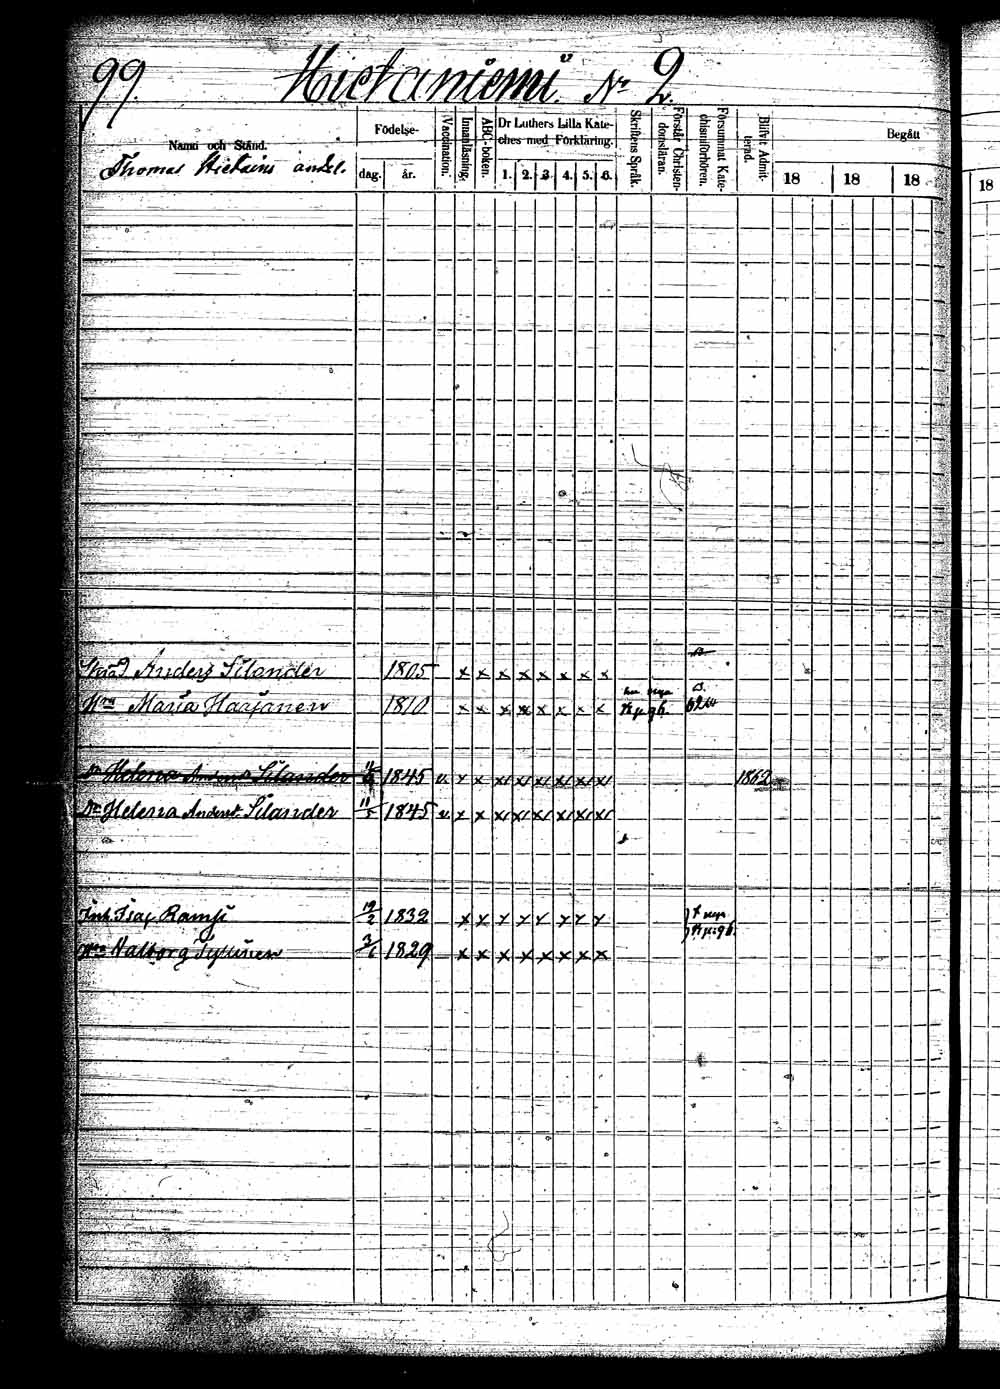 99.
Hietaniemi. No 2.
Namn och Stånd.
Thomas Hietains andel.
Födelse-
dag.
år.
Vaccination.
Innanläsning.
ABC-boken.
Dr Luthers Lilla Kate-
ches med Förklaring.
1. 2. 3. 4. 5. 6.
Skriftens Språk.
Förstår Christen-
domsläran.
Försummat Kate-
chismiförhören.
Blifvit Admit-
terad.
Begått
18 18 18 18
Anders Silander 1805 x x x x x x x x
Maria Haajanen 1810 x x x x x x x x
Helena Silander 1845 v. x x x x x x x x 1862
Helena Silander 11/5 1845 v. x x x x x x x x
Inh. Isac Ramji 19/2 1832 x x x x x x x x
Valborg 1829 x x x x x x x x